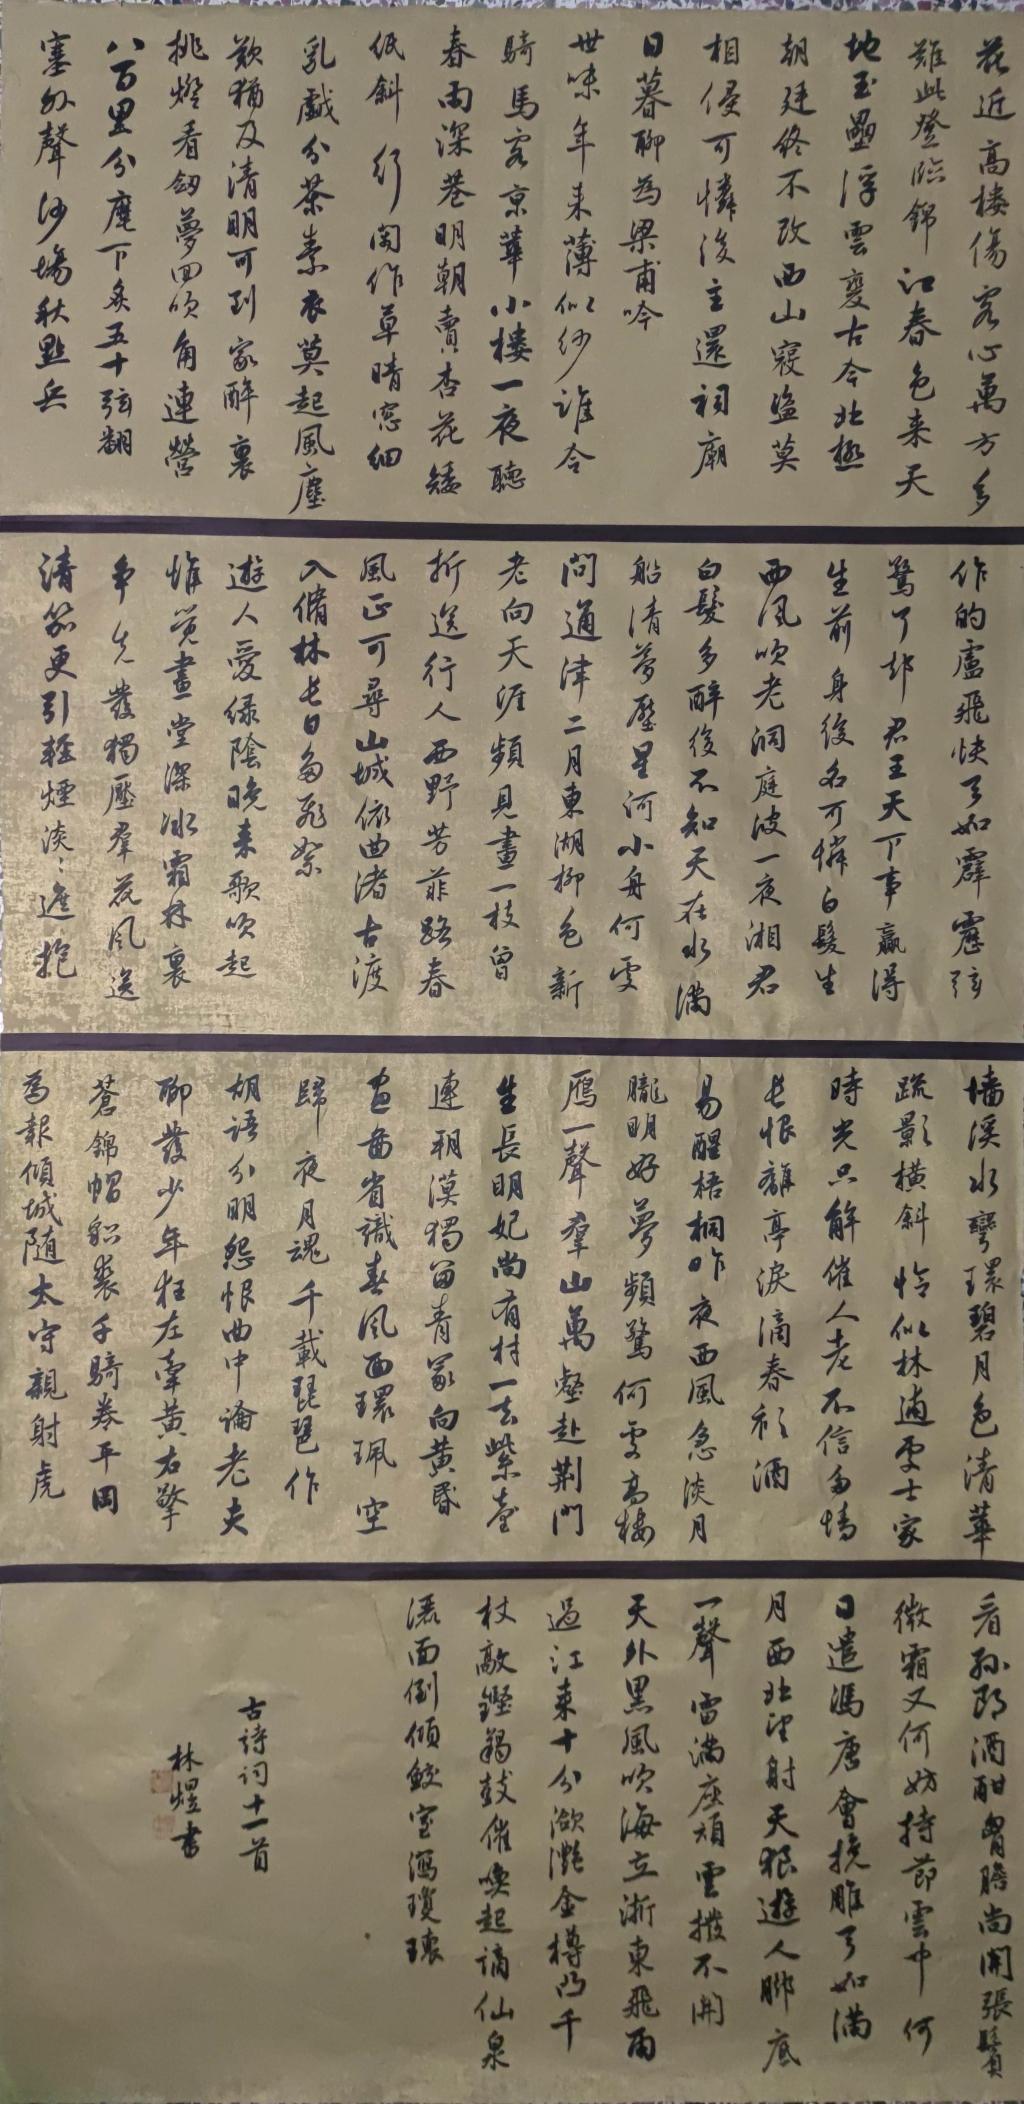 花近高楼傷客心萬方多
難此登臨錦江春色来天
地玉壘浮雲變古今北極
朝廷終不改西山寇盗莫
相侵可憐後主還祠廟
日暮聊為梁甫吟
世味年来薄似紗誰令
騎馬客京華小樓一夜聽
春雨深巷明朝賣杏花矮
纸斜行閑作草晴窓细
乳戲分茶素衣莫起風塵
歎猶及清明可到家醉裏
挑燈看劍夢回吹角連營
八百里分麾下炙五十弦翻
塞外聲沙場秋點兵
作的盧飛快弓如霹靂弦
驚了却君王天下事贏得
生前身後名可憐白髮生
西風吹老洞庭波一夜湘君
白髮多醉後不知天在水滿
船清夢壓星河小舟何處
問通津二月東湖柳色新
老向天涯頻見畫一枝曾
折送行人西野芳菲路春
風正可尋山城依曲渚古渡
入脩林長日多飛絮
遊人愛绿陰晚来歌吹起
惟覺畫堂深冰霜林裏
争先發獨壓羣花風送
清笳更引輕煙淡淡遮抱
墙溪水彎環碧月色清華
疏影横斜恰似林逋處士家
時光只解催人老不信多情
長恨離亭淚滴春衫酒
易醒梧桐昨夜西風急淡月
朧明好夢頻驚何處高樓
鴈一聲羣山萬壑赴荆門
生長明妃尚有村一去紫臺
連朔漠獨留青冢向黄昏
画圖省識春風面環珮空
歸夜月魂千載琵琶作
胡語分明怨恨曲中論老夫
聊發少年狂左牽黄右擎
蒼錦帽貂裘千騎卷平岡
為報傾城随太守親射虎
看孫郎酒酣胷膽尚開張鬢
微霜又何妨持節雲中何
日遣馮唐會挽雕弓如滿
月西北望射天狼遊人脚底
一聲雷滿座頑雲撥不開
天外黑風吹海立浙東飛雨
過江来十分瀲灔金樽凸千
杖敲鏗羯鼓催喚起謫仙泉
灑面倒傾鮫室瀉瓊瑰
古詩词十一首
林煜書